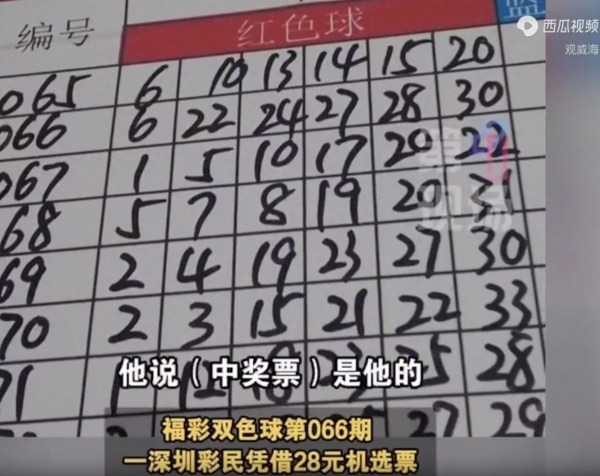 蓝
西瓜视频
观威海
编号 红色球
065 6 10 13 14 15 20
066 6 22 24 27 28 30
067 1 5 10 17 20 22
68 5 7 8 19 20 31
69 2 4 19 23 27 30
70 2 3 15 21 22 33
71 1 12 25 28
他说（中奖票）是他的
27 29
福彩双色球第066期
一深圳彩民凭借28元机选票